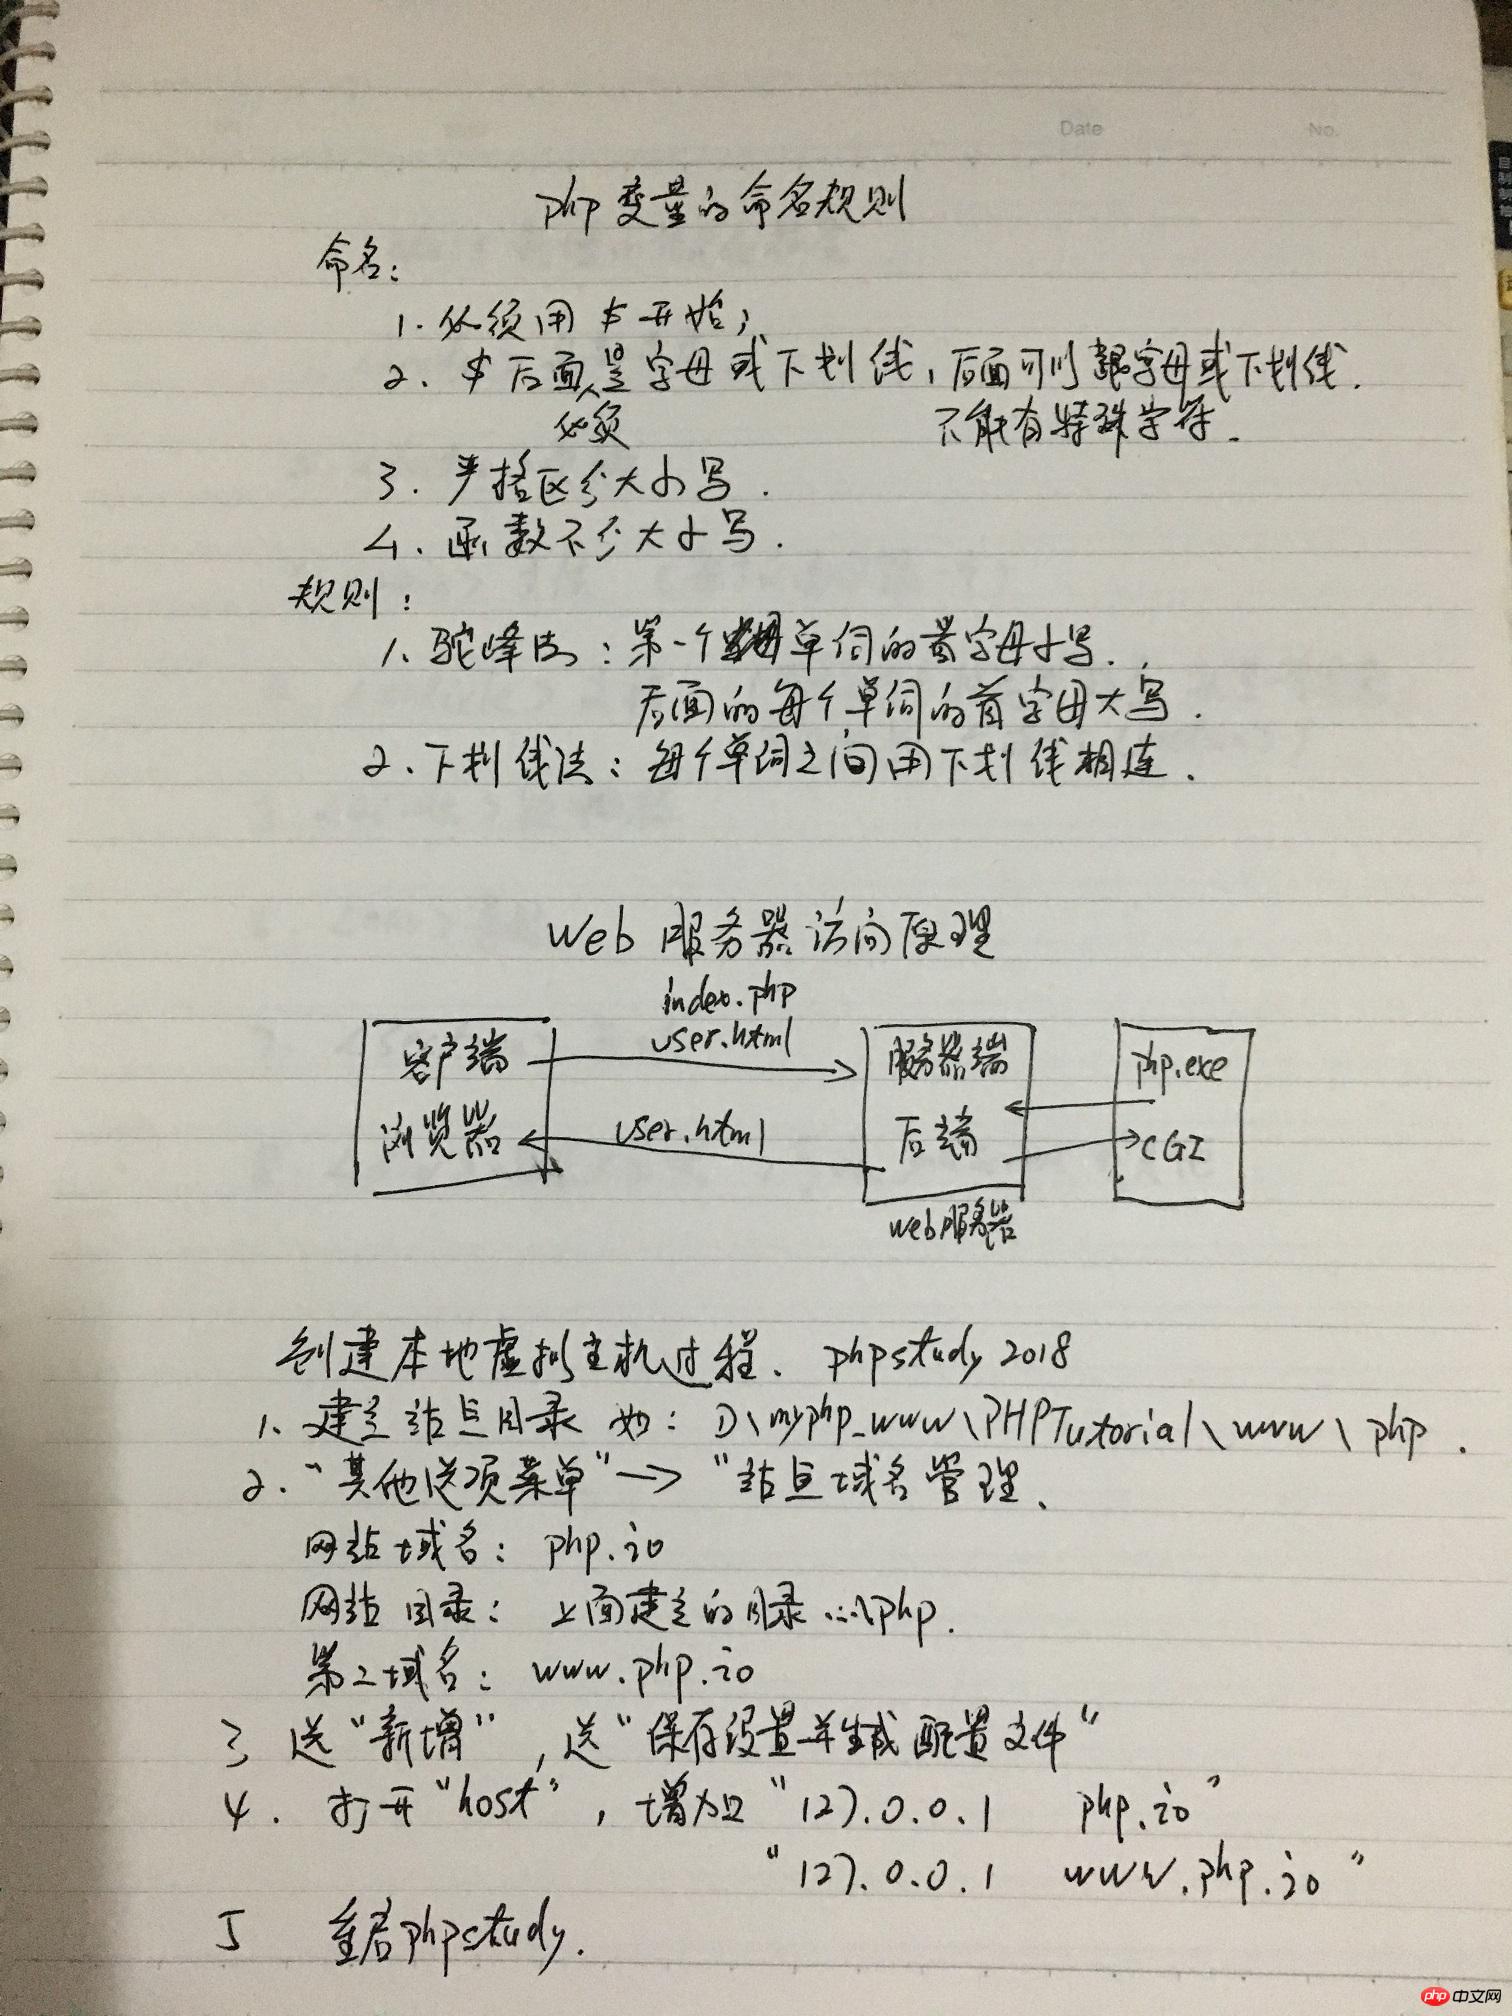 Date No.
php变量的命名规则
命名:
1. 必须用$开始;
2. $后面是字母或下划线,后面可以跟字母或下划线.
必须 不能有特殊字符.
3. 严格区分大小写.
4. 函数不分大小写.
规则:
1、驼峰法:第一个单词的首字母小写.
后面的每个单词的首字母大写.
2、下划线法:每个单词之间用下划线相连.
Web 服务器访问原理
index.php
user.html
客户端 服务器端 php.exe
浏览器 user.html 后端 CGI
web服务器
创建本地虚拟主机过程. phpstudy 2018
1、建立站点目录 如: D\myphp_www\PHPTutorial\www\php.
2. "其他选项菜单"→"站点域名管理、
网站域名: php.io
网站目录: 上面建立的目录...\php.
第二域名: www.php.io
3 选"新增",选"保存设置并生成配置文件"
4. 打开"host",增加"127.0.0.1 php.io"
"127.0.0.1 www.php.io"
5 重启phpstudy.
php 中文网